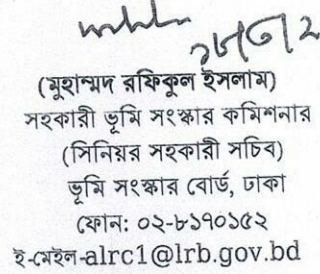 (মুহাম্মদ রফিকুল ইসলাম)
সহকারী ভূমি সংস্কার কমিশনার
(সিনিয়র সহকারী সচিব)
ভূমি সংস্কার বোর্ড, ঢাকা
ফোন: ০২-৮১৭০১৫২
ই-মেইল-alrc1@lrb.gov.bd